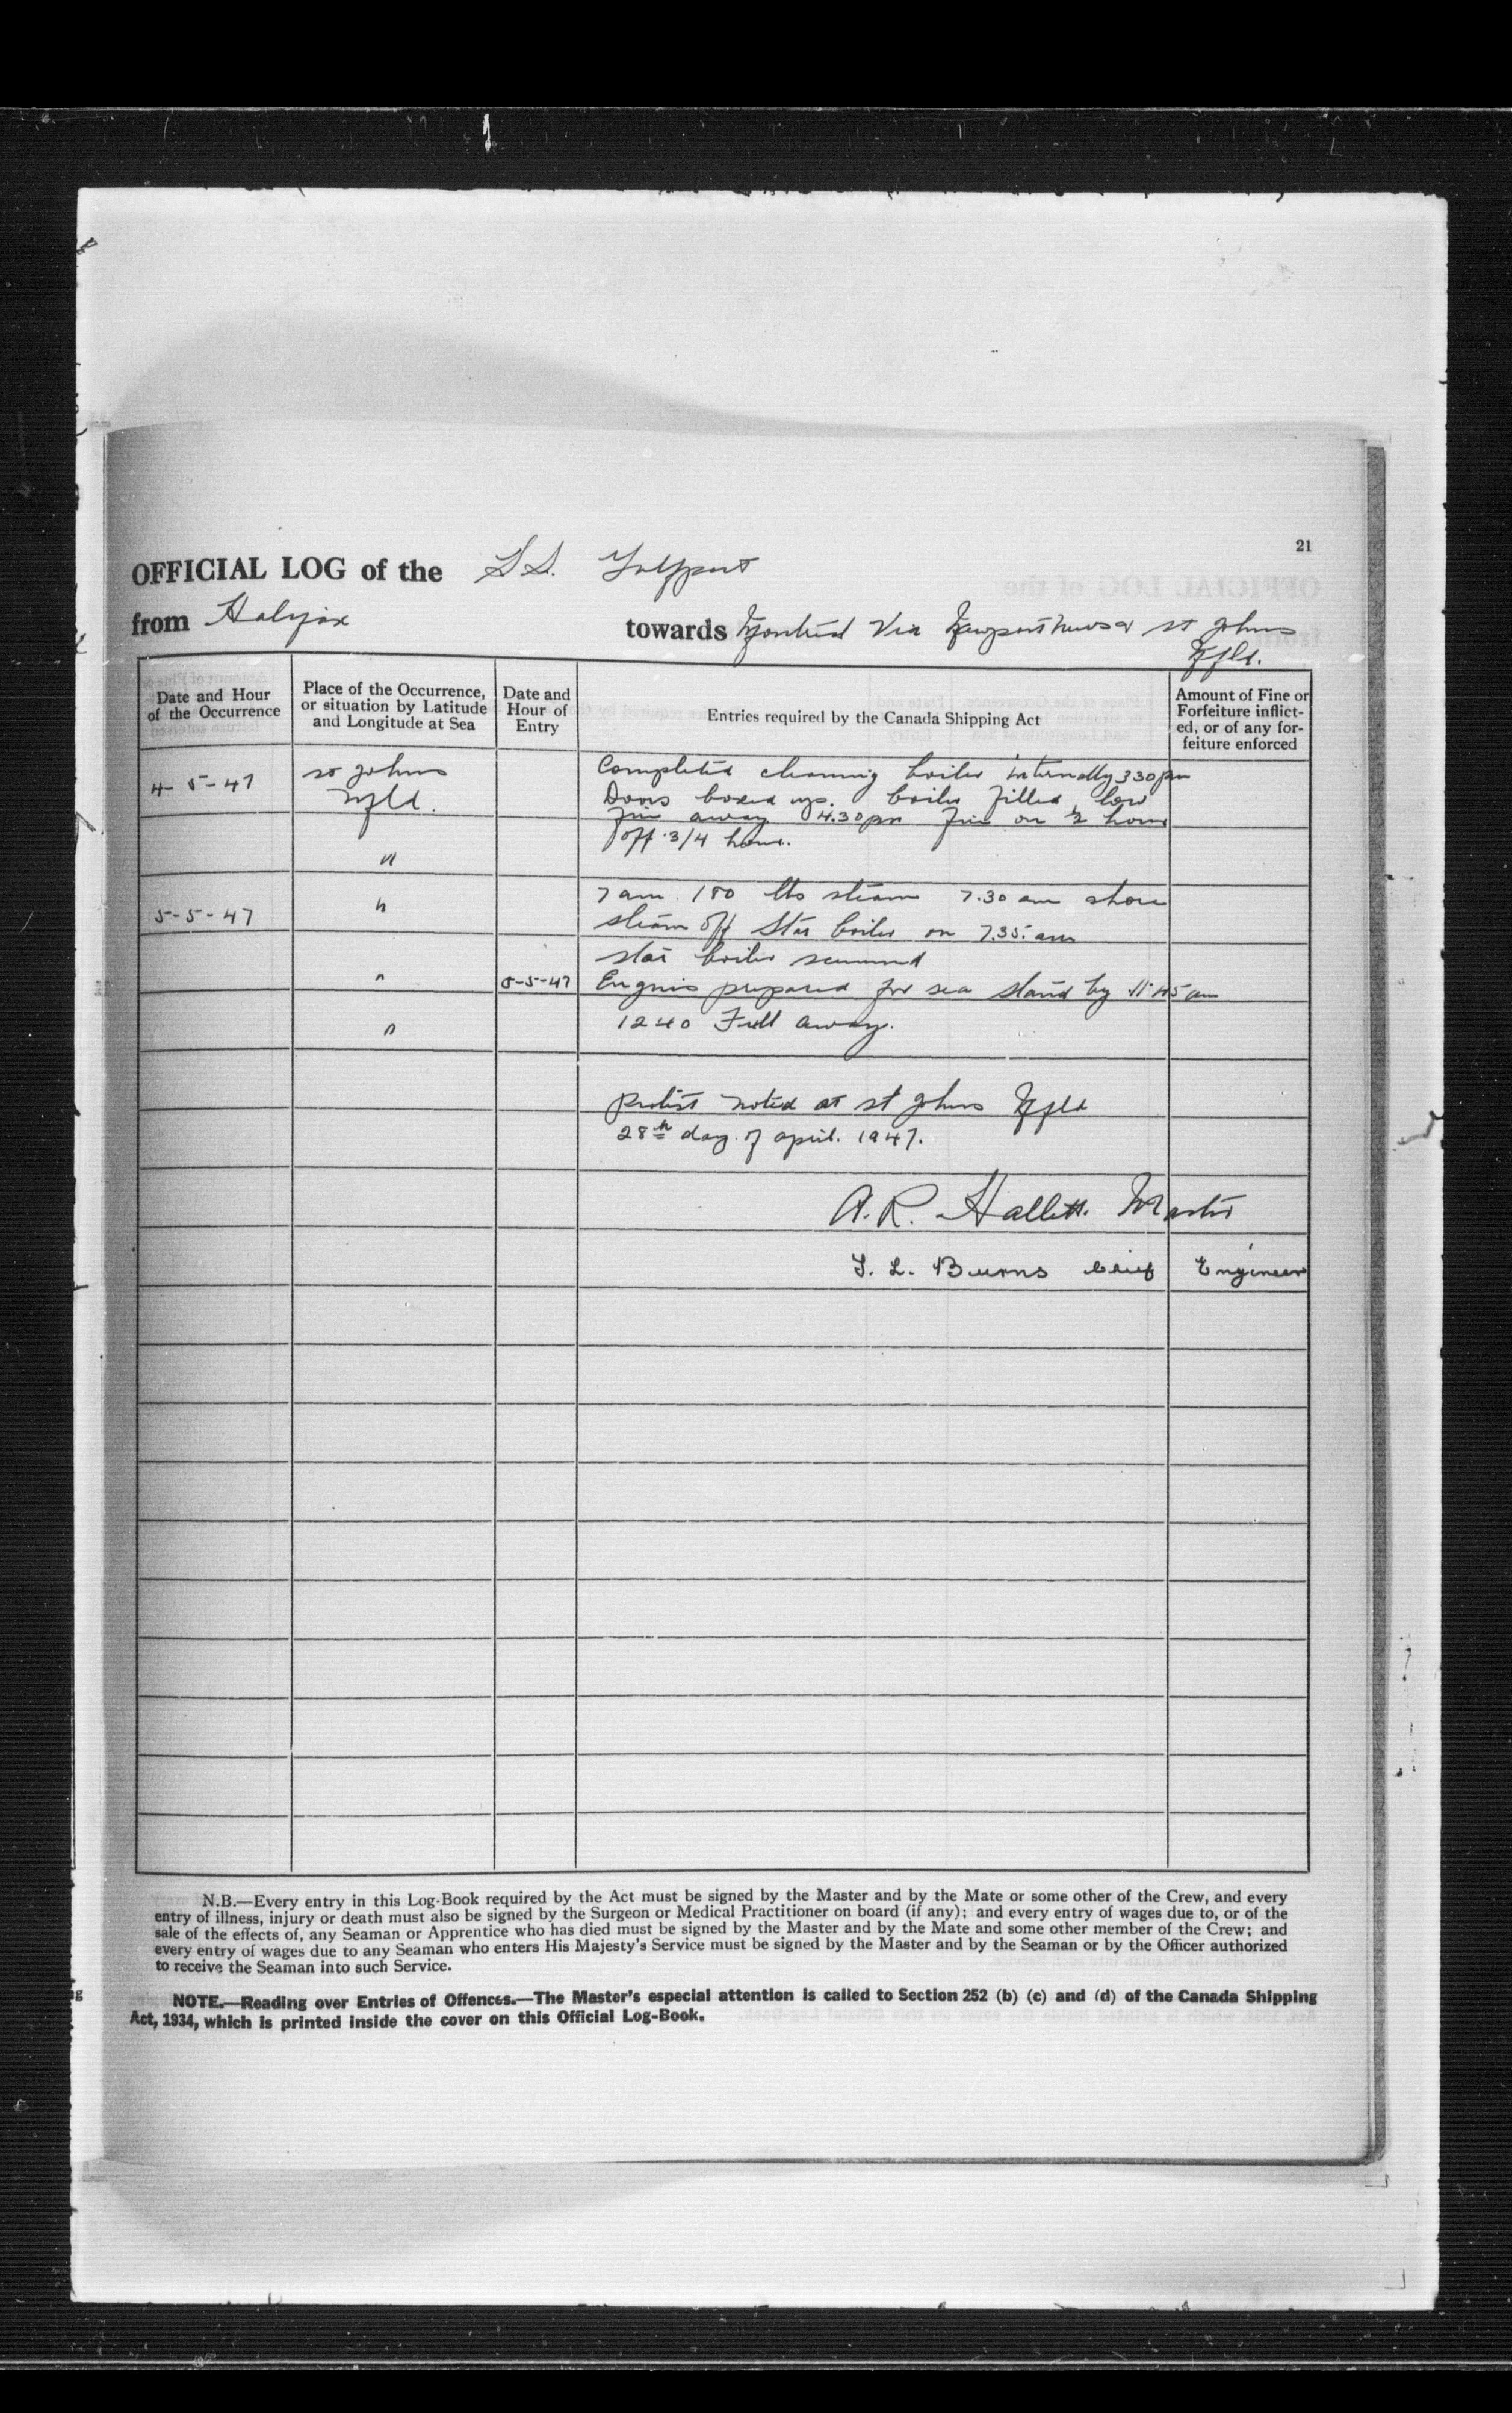 21
OFFICIAL LOG of the S.S. Gulfport
from Halifax towards Montreal Via Newport News & St Johns
Nfld.
Date and Hour of the Occurrence
Place of the Occurrence, or situation by Latitude and Longitude at Sea
Date and Hour of Entry
Entries required by the Canada Shipping Act
Amount of Fine or Forfeiture inflicted, or of any forfeiture enforced
4-5-47 St Johns Completed cleaning boiler internally 330 pm
Nfld. Doors boxed up. boiler filled, low
fire away 4.30 pm fire on ½ hour
" off 3/4 hour.
5-5-47 " 7 am. 180 lbs steam 7.30 am shore
steam off Star boiler on 7.35. am
star boiler scummed
" 5-5-47 Engines prepared for sea stand by 11.45 am
" 1240 Full away.
Protest noted at St Johns Nfld
28th day of april. 1947.
A.R. Hallett. Master
L. Burns Chief Engineer
N.B.—Every entry in this Log-Book required by the Act must be signed by the Master and by the Mate or some other of the Crew, and every
entry of illness, injury or death must also be signed by the Surgeon or Medical Practitioner on board (if any); and every entry of wages due to, or of the
sale of the effects of, any Seaman or Apprentice who has died must be signed by the Master and by the Mate and some other member of the Crew; and
every entry of wages due to any Seaman who enters His Majesty's Service must be signed by the Master and by the Seaman or by the Officer authorized
to receive the Seaman into such Service.
NOTE.—Reading over Entries of Offences.—The Master's especial attention is called to Section 252 (b) (c) and (d) of the Canada Shipping
Act, 1934, which is printed inside the cover on this Official Log-Book.